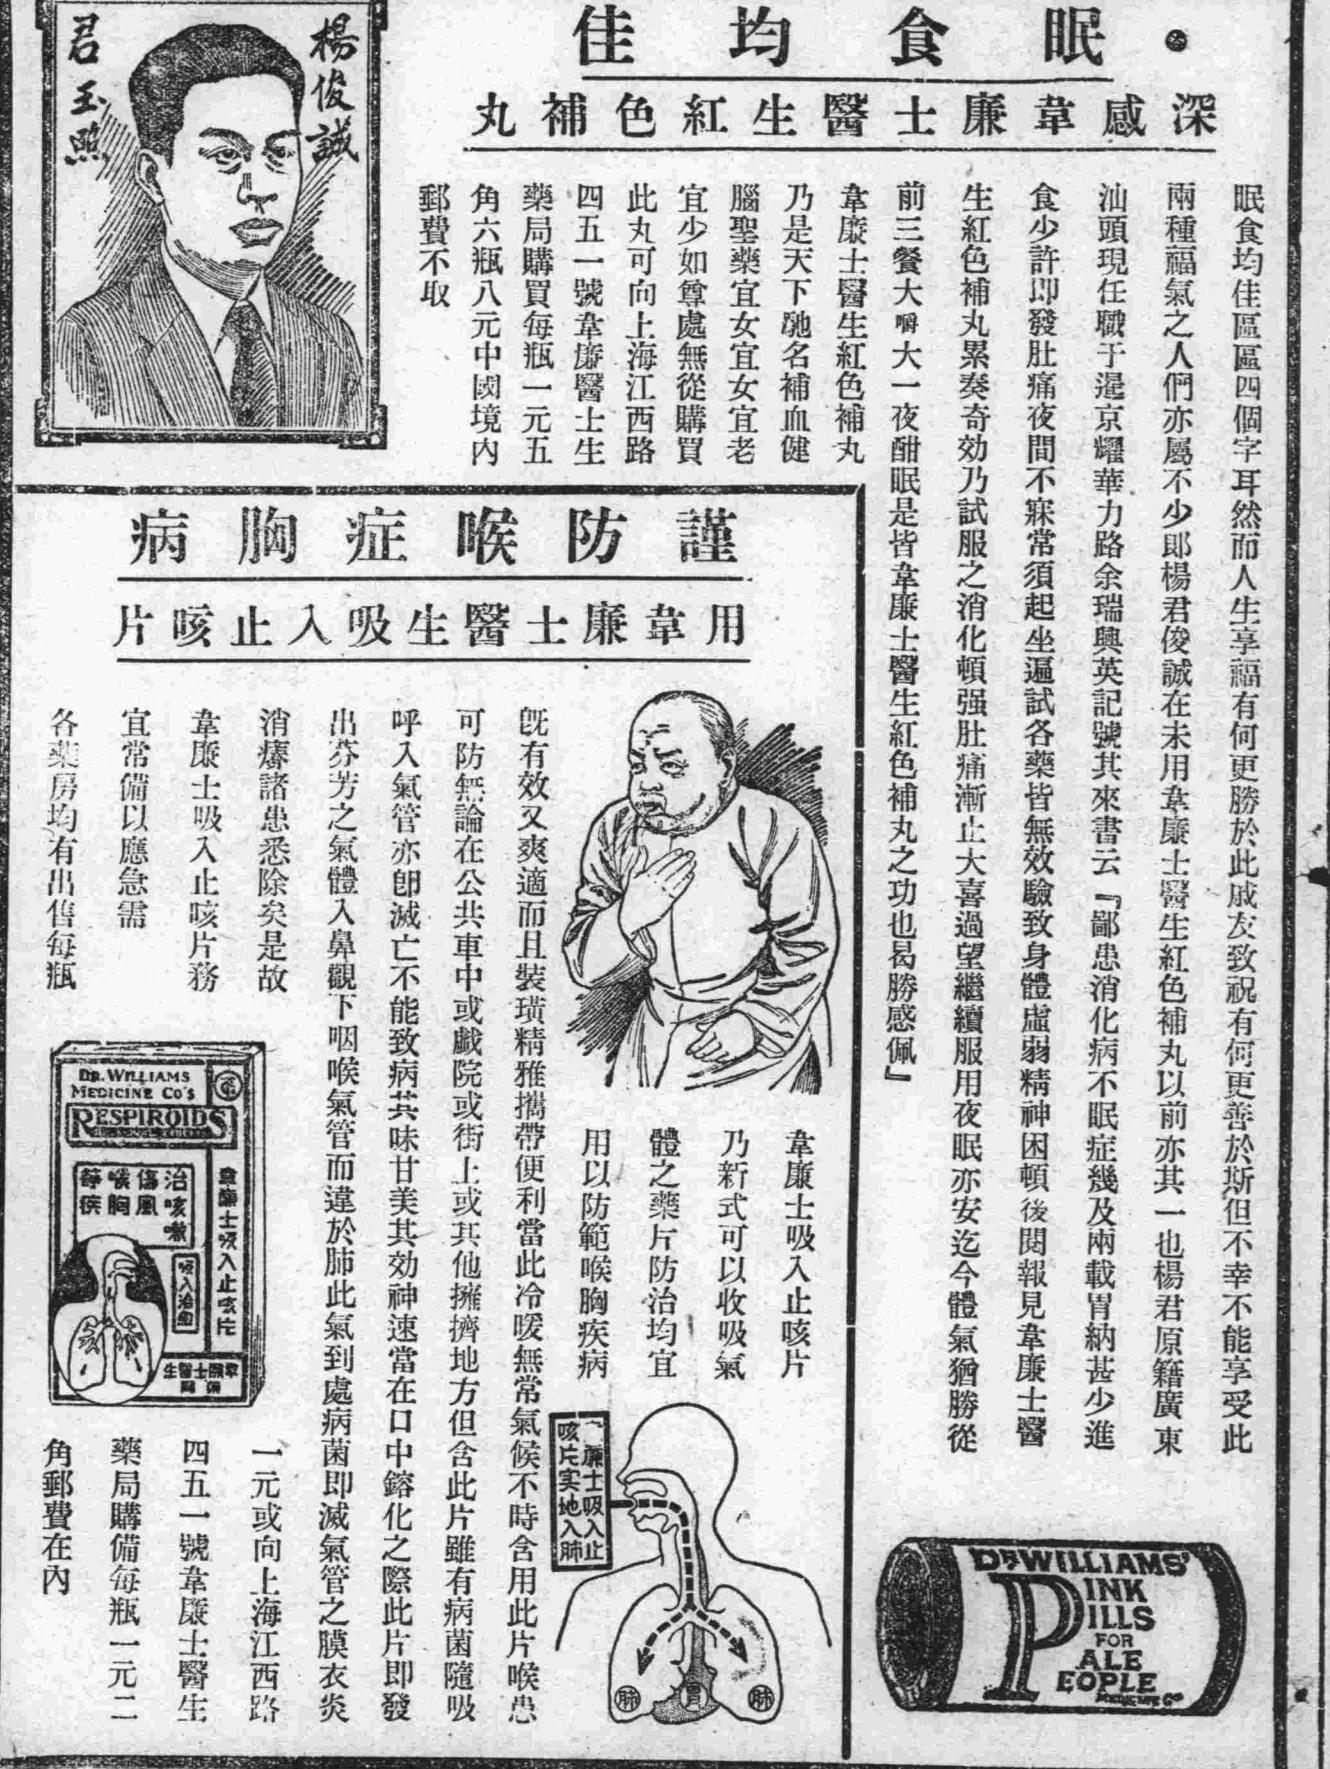 眠食均佳
深感韋廉士醫生紅色補丸
楊俊誠
君玉照
眠食均佳區區四個字耳然而人生享福有何更勝於此戚友致祝有何更善於斯但不幸不能享受此
兩種福氣之人們亦屬不少即楊君俊誠在未用韋廉士醫生紅色補丸以前亦其一也楊君原籍廣東
汕頭現任職于暹京耀華力路余瑞興英記號其來書云『鄙患消化病不眠症幾及兩載胃納甚少進
食少許即發肚痛夜間不寐常須起坐遍試各藥皆無效驗致身體虛弱精神困頓後閱報見韋廉士醫
生紅色補丸累奏奇効乃試服之消化頓强肚痛漸止大喜過望繼續服用夜眠亦安迄今體氣猶勝從
前三餐大嚼大一夜酣眠是皆韋廉士醫生紅色補丸之功也曷勝感佩』
韋廉士醫生紅色補丸
乃是天下馳名補血健
腦聖藥宜女宜女宜老
宜少如尊處無從購買
此丸可向上海江西路
四五一號韋廉醫士生
藥局購買每瓶一元五
角六瓶八元中國境內
郵費不取
DR WILLIAMS'
PINK
PILLS
FOR
PALE
PEOPLE
謹防喉症胸病
用韋廉士醫生吸入止咳片
韋廉士吸入止咳片
乃新式可以收吸氣
體之藥片防治均宜
用以防範喉胸疾病
既有效又爽適而且裝璜精雅攜帶便利當此冷暖無常氣候不時含用此片喉患
可防無論在公共車中或戲院或街上或其他擁擠地方但含此片雖有病菌隨吸
呼入氣管亦卽滅亡不能致病其味甘美其効神速當在口中鎔化之際此片即發
出芬芳之氣體入鼻觀下咽喉氣管而達於肺此氣到處病菌即滅氣管之膜衣炎
消瘰諸患悉除矣是故
韋廉士吸入止咳片務
宜常備以應急需
各藥房均有出售每瓶
一元或向上海江西路
四五一號韋廉士醫生
藥局購備每瓶一元二
角郵費在內
DR. WILLIAMS
MEDICINE CO'S
RESPIROIDS
韋廉士吸入止咳片
治咳嗽
傷風
喉胸
等疾
吸入治愈
韋廉士醫生
藥局
廉士吸入止
咳片实地入肺
肺
胃
肺